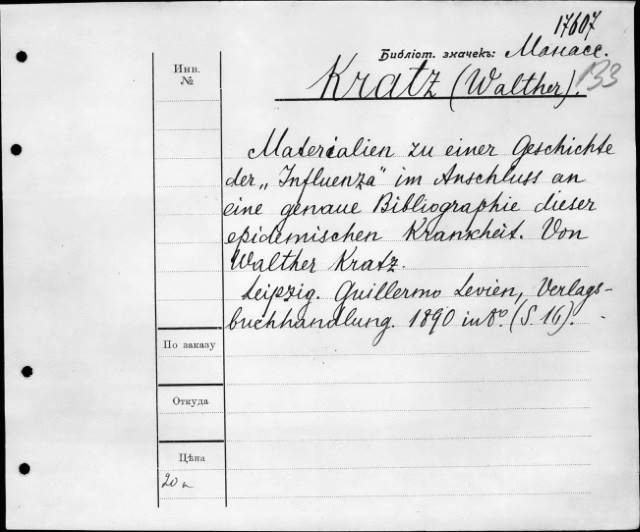 17607
Библіот. значекъ: Монасс.
Kratz (Walther). 133
Инв.
№
Materialien zu einer Geschichte
der „Influenza" im Anschluss an
eine genaue Bibliographie dieser
epidemischen Krankheit. Von
Walther Kratz.
Leipzig. Guillermo Levien, Verlags-
buchhandlung. 1890 in 8°. (S. 16).
По заказу
Откуда
Цѣна
20